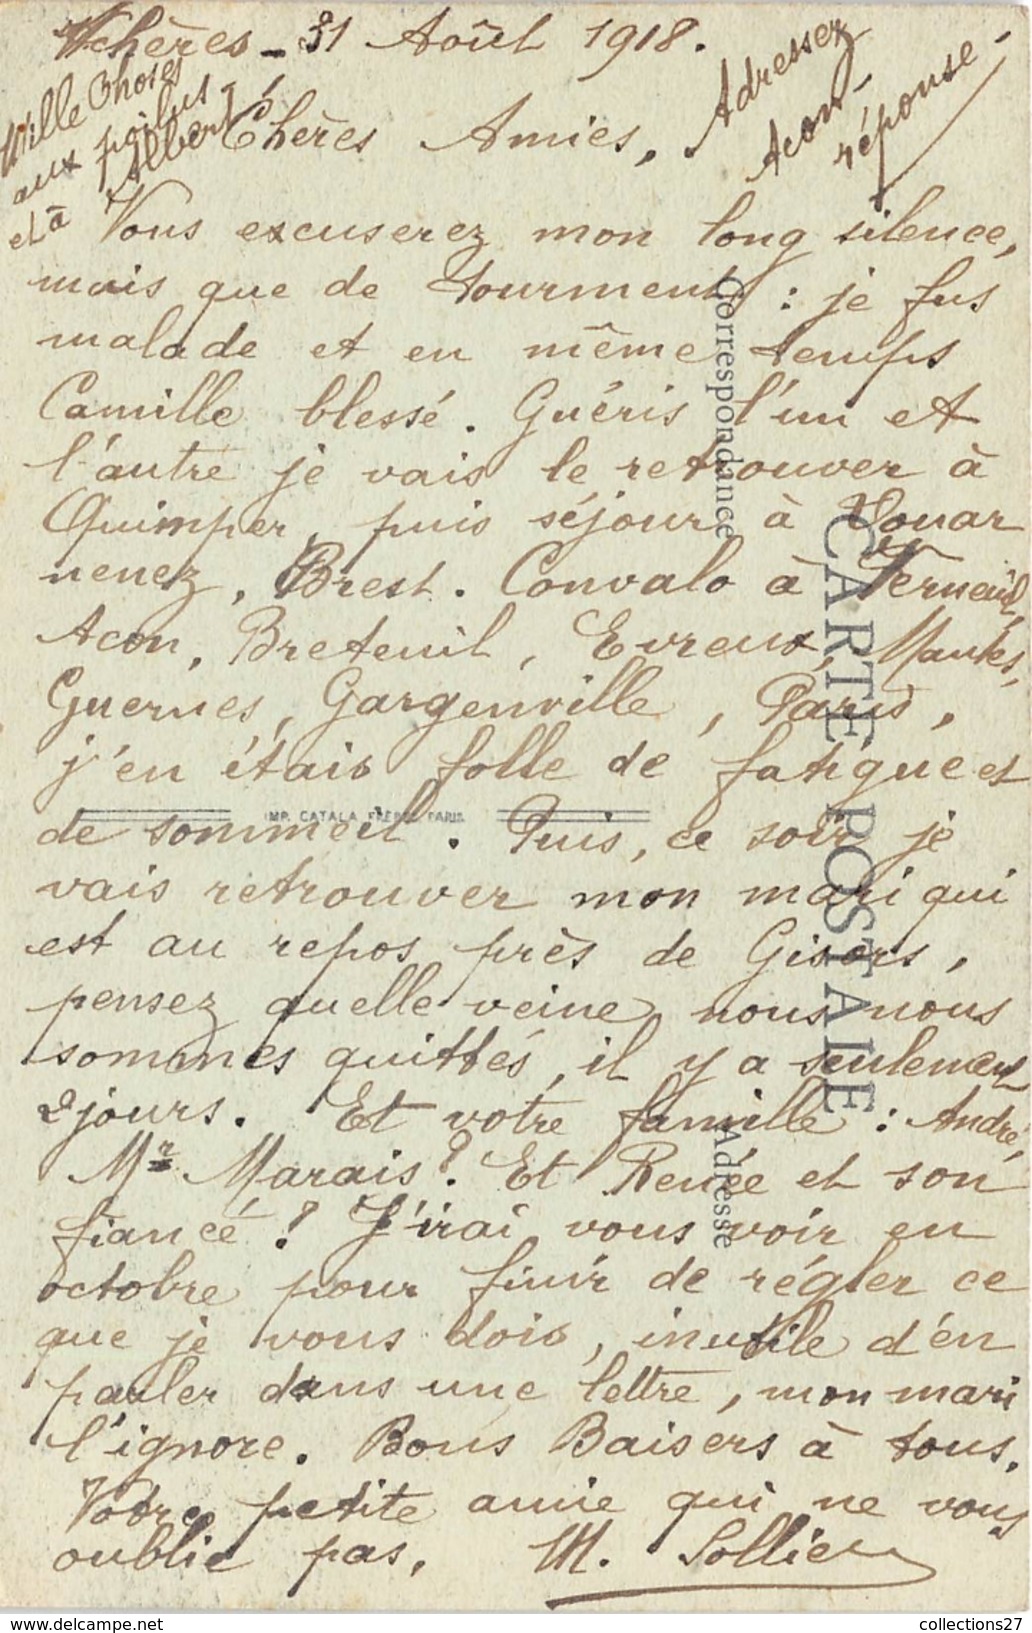 Achères - 31 Août 1918.
Mille Choses
aux poilus
et à Albert !
Adressez
Acon -
réponse -
Chères Amies,
Vous excuserez mon long silence,
mais que de tourments : je fus
malade et en même temps
Camille blessé. Guéris l'un et
l'autre je vais le retrouver à
Quimper, puis séjour à Douar
nenez, Brest. Convalo à Verneuil,
Acon, Breteuil, Evreux, Mantes,
Guernes, Gargenville, Paris,
j'en étais folle de fatigue et
de sommeil. Puis, ce soir je
vais retrouver mon mari qui
est au repos près de Gisors,
pensez quelle veine nous nous
sommes quittés, il y a seulement
2 jours. Et votre famille : André,
Mr Marais ? Et Renée et son
fiancé ? J'irai vous voir en
octobre pour finir de régler ce
que je vous dois, inutile d'en
parler dans une lettre, mon mari
l'ignore. Bons Baisers à tous.
Votre petite amie qui ne vous
oublie pas. M. Sollier
Correspondance
CARTE POSTALE
Adresse
IMP. CATALA FRÈRES PARIS
www.delcampe.net
collections27